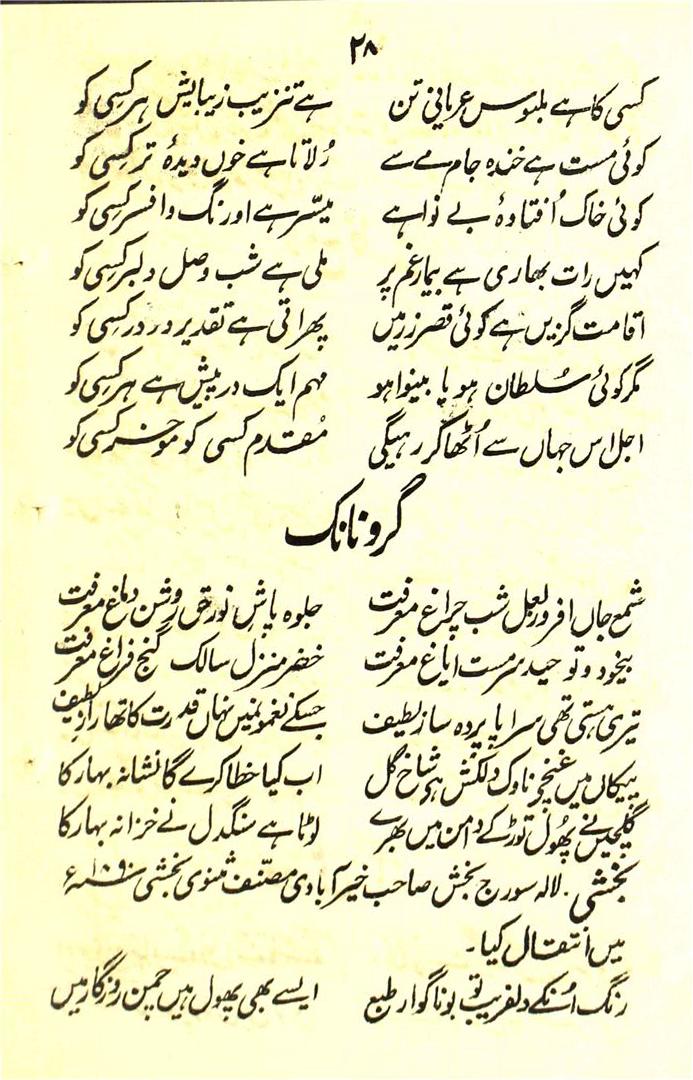 ۲۸
کسی کا ہے ملبوس عریانی تن ہے تنزیب زیبایش ہر کسی کو
کوئی مست ہے خندہ جام مے سے رُلاتا ہے خوں دیدۂ تر کسی کو
کوئی خاک اُفتادۂ بے نوا ہے میسّر ہے اورنگ و افسر کسی کو
کہیں رات بھاری ہے بیمار غم پر ملی ہے شب وصل دلبر کسی کو
اقامت گزیں ہے کوئی قصر زر میں پھراتی ہے تقدیر در در کسی کو
مگر کوئی سُلطان ہو یا بینوا ہو مہم ایک درپیش ہے ہر کسی کو
اجل اس جہاں سے اُٹھا کر رہیگی مُقدم کسی کو موخر کسی کو
گرو نانک
شمع جاں افروز لعل شب چراغ معرفت جلوہ پاش نور حق روشن دماغ معرفت
بیخود و توحید سرمست ایاغ معرفت خضر منزل سالک گنج فراغ معرفت
تیری ہستی تھی سراپا پردہ ساز لطیف جسکے نغمونمیں نہاں قدرت کا تھا راز لطیف
پیکاں میں غنچہ ناوک دلکش ہر شاخ گل اب کیا خطا کرے گا نشانہ بہار کا
گلچیں نے پھول توڑ کے دامن میں بھرے لوٹا ہے سنگدل نے خزانہ بہار کا
بخشی . لالہ سورج بخش صاحب خیرآبادی مصنّف مثنوی بخشی ۱۸۹۰ء
میں انتقال کیا۔
رنگ اُنکے دلفریب تو بو ناگوار طبع ایسے بھی پھول ہیں چمن روزگار میں